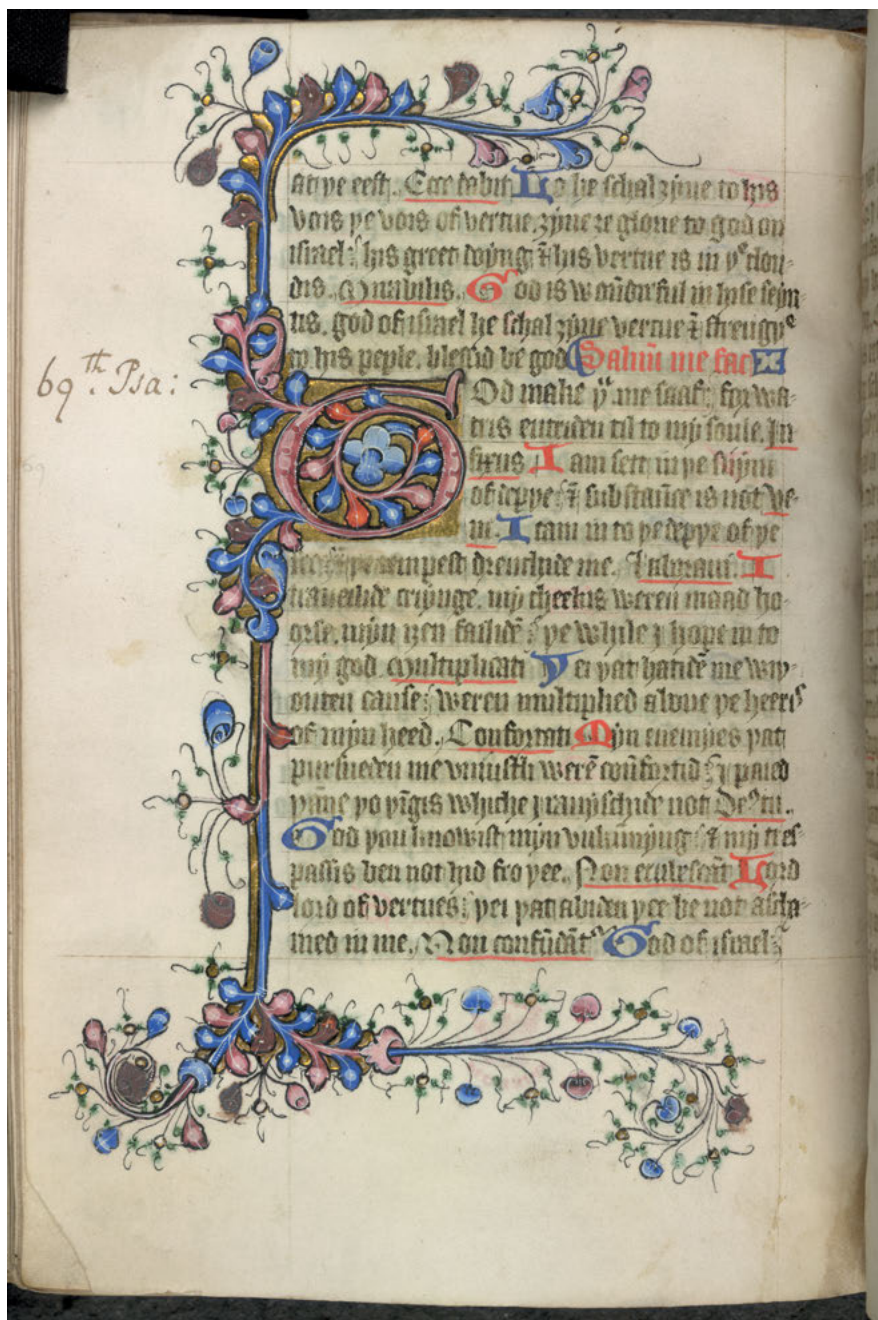 at þe eest. Ecce dabit Lo he schal ȝyue to his
vois þe vois of vertue. ȝyue ȝe glorie to god on
israel: his greet doyng & his vertue is in þe clou-
dis. Mirabilis. God is wondirful in hise seyn
tis. god of israel he schal ȝyue vertue & strengþe
to his peple. blessid be god Saluū me fac
69th. Psa:
God make þu me saaf: for wa-
tris entriden til to my soule. In
fixus I am sett in þe slym
of deppe: & substaūce is not Ve-
ni. I cam in to þe deppe of þe
see: & þe tempest drenchide me. Laboraui. I
traueilide criynge. my cheekis weren maad ho-
orse. myn iȝen failidē: þe while I hope in to
my god. Multiplicati Þei þat hatidē me wiþ-
outen cause: weren multiplied aboue þe heeris
of myn heed. Confortati Myn enemyes þat
pursueden me vniustli werē coūfortid: I paied
þāne þo þīgis whiche I rauyschide not Deus tu.
God þou knowist myn vnkunnyng: & my tres-
passis ben not hid fro þee. Non erubescāt Lord
lord of vertues: þei þat abiden þee be not ascha-
med in me. Non confūdāt God of israel: